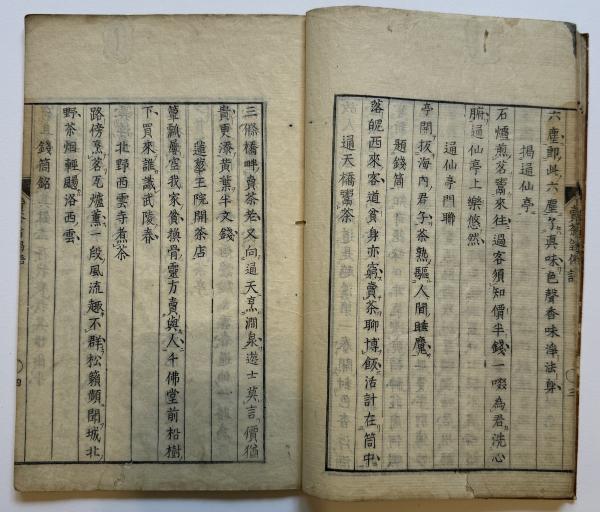 六塵即此六塵了真味色聲香味淨法身
揭通仙亭
石爐煎茗鬻來往過客須知價半錢一啜為君洗心
腑通仙亭上樂悠然
通仙亭門聯
亭開拔海內君子茶熟驅人間睡魔
題錢筒
落魄西來客道貧身亦窮賣茶聊博飯活計在筒中
通天橋鬻茶
賣茶翁偈語
三
三條橋畔賣茶又向通天烹澗泉遊士莫言價猶
貴更添黃葉半文錢
蓮華王院開茶店
簞瓢屢空我家貧換骨靈方賣與人千佛堂前松樹
下買來誰識武陵春
北野西雲寺煮茶
路傍烹茗瓦爐薰一段風流趣不群松籟頻聞城北
野茶烟輕颺洛西雲
錢筒銘
四